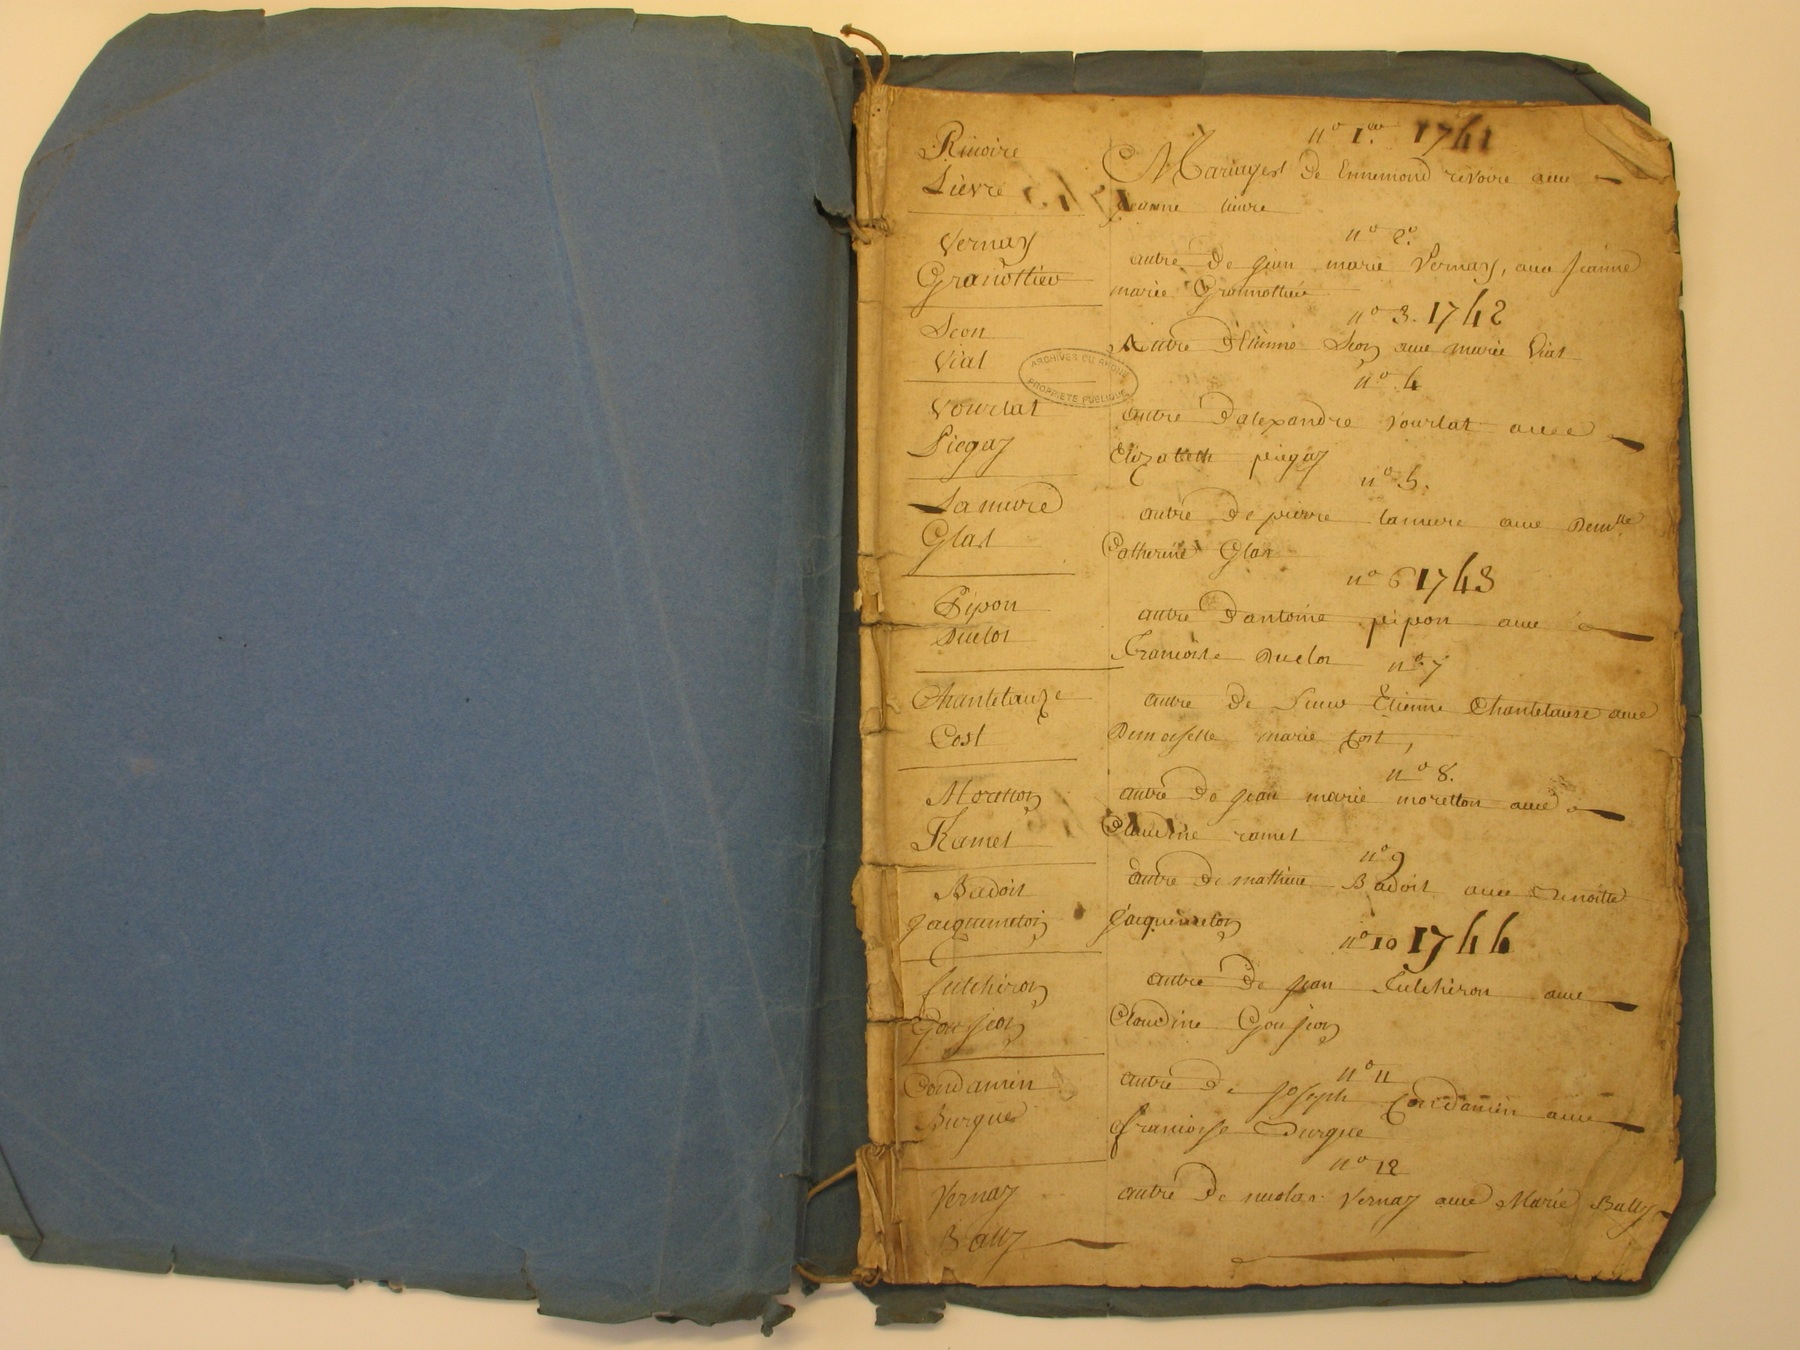 n° 1er 1741
Rivoire
Lievre
Mariages de Ennemond revoire avec
jeanne lievre
n° 2°
Vernay
Granottier
autre De jean marie Vernay, avec Jeanne
marie Gronnottiée
n° 3. 1742
Seon
Vial
Autre D'Etienne Seon avec marie Vial
ARCHIVES DU RHONE
PROPRIETE PUBLIQUE
n° 4
Vourlat
Piegay
autre Dalexandre Vourlat avec
Elizabeth piegay
n° 5.
Lamure
Glas
autre De pierre lamure avec Demlle
Catherine Glas
n° 6 1743
Pipon
Duclos
autre Dantoine pipon avec
Francoise Duclos
n° 7
Chantelauze
Cost
autre De Sieur Etienne Chantelauze avec
Demoiselle marie Cost,
n° 8.
Moretton
Ramel
autre De jean marie moretton avec
Claudine ramel
n° 9
Badoit
Jacquemeton
autre De mathieu Badoit avec
jacquemeton
n° 10 1744
fulchiron
Goujon
autre De jean fulchiron avec
Claudine Goujon
n° 11
Condamin
Burgue
autre De joseph Condamin avec
francoise Durgue
n° 12
Vernay
Bally
autre De nicolas Vernay avec Marie Bally